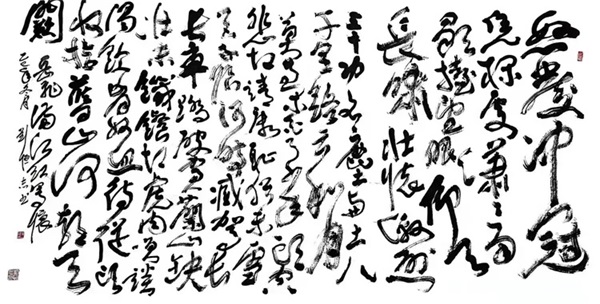 怒髮冲冠
凭栏处潇潇雨
歇抬望眼仰天
長啸壮怀激烈
三十功名尘与土八
千里路云和月
莫等闲白了少年头空
悲切靖康耻犹未雪
臣子恨何时灭驾長
車踏破贺蘭山缺
壮志饥餐胡虏肉笑谈
渴饮匈奴血待从头
收拾舊山河朝天
闕
岳飞满江红写怀